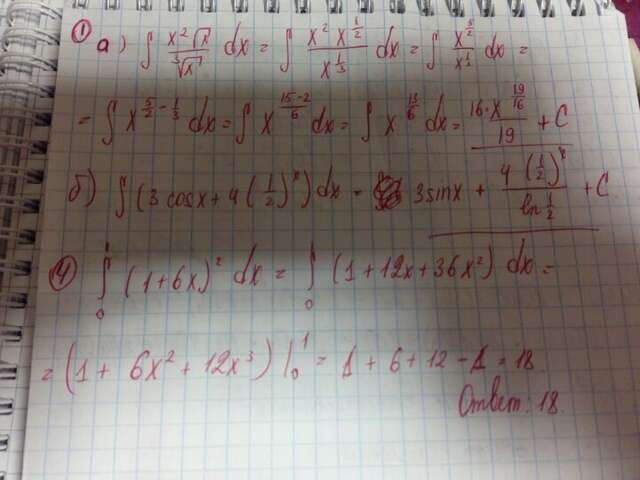 ① а) ∫ x² √x / ∛x dx = ∫ x² x^(1/2) / x^(1/3) dx = ∫ x^(5/2) / x^(1/3) dx =
= ∫ x^(5/2 - 1/3) dx = ∫ x^((15-2)/6) dx = ∫ x^(13/6) dx = 16·x^(19/16) / 19 + C
б) ∫ (3 cos x + 4 (1/2)^x) dx = 3 sin x + 4 (1/2)^x / ln 1/2 + C
④ ∫₀¹ (1+6x)² dx = ∫₀¹ (1+12x+36x²) dx =
= (1 + 6x² + 12x³) |₀¹ = 1 + 6 + 12 - 1 = 18
Ответ: 18.